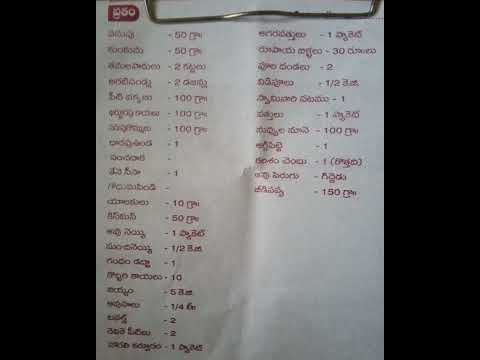 వ్రతం
పసుపు - 50 గ్రా॥
కుంకుమ - 50 గ్రా॥
తమలపాకులు - 2 కట్టలు
అరటిపండ్లు - 2 డజన్లు
పేట వక్కలు - 100 గ్రా॥
ఖర్జూరపు కాయలు - 100 గ్రా॥
పసుపుకొమ్ములు - 100 గ్రా॥
దారపుఉండ - 1
పంచదార -
తేనె సీసా - 1
గోధుమపిండి -
యాలకులు - 10 గ్రా॥
కిస్‌మిస్ - 50 గ్రా॥
ఆవు నెయ్యి - 1 ప్యాకెట్
మంచినెయ్యి - 1/2 కె.జి.
గంధం డబ్బా - 1
కొబ్బరి కాయలు - 10
బియ్యం - 5 కె.జి.
ఆవుపాలు - 1/4 లీ॥
టవల్స్ - 2
రవికె పీట్‌లు - 2
హారతి కర్పూరం - 1 ప్యాకెట్
అగరవత్తులు - 1 ప్యాకెట్
రూపాయి బిళ్ళలు - 30 రూ॥లు
పూల దండలు - 2
విడిపూలు - 1/2 కె.జి.
స్వామివారి పటము - 1
వత్తులు - 1 ప్యాకెట్
నువ్వుల నూనె - 100 గ్రా॥
అగ్గిపెట్టె - 1
కలశం చెంబు - 1 (కొత్తది)
ఆవు పెరుగు - గిద్దెడు
జీడిపప్పు - 150 గ్రా॥